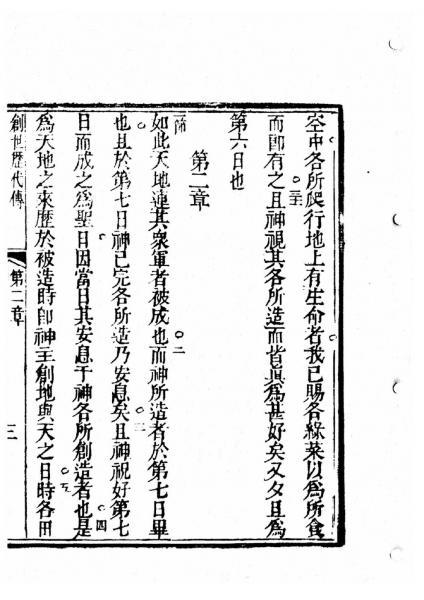 空中各所爬行地上有生命者我已賜各綠菜以為所食
而即有之且神視其各所造而皆眞為甚好矣又夕且為
三十
第六日也
第二章
一節
如此天地連其衆軍者被成也而神所造者於第七日畢
二
也且於第七日神已完各所造乃安息矣且神祝好第七
三
日而成之為聖日因當日其安息于神各所創造者也是
四
為天地之來歷於被造時即神主創地與天之日時各田
五
創世歷代傳
第二章
三